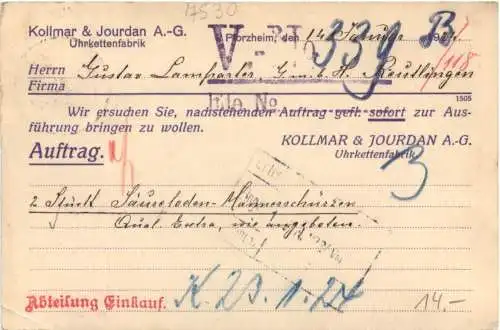 7530
Kollmar & Jourdan A.-G.
Uhrkettenfabrik
Pforzheim, den 14. Januar 1924
V
339 B
1/118
Herrn
Firma
Gustav Lamparter, G.m.b.H. Reutlingen
File No
1505
Wir ersuchen Sie, nachstehenden Auftrag gefl. sofort zur Aus-
führung bringen zu wollen.
KOLLMAR & JOURDAN A.-G.
Uhrkettenfabrik
Auftrag.
3
2 Stück Säureloden-Männerschürzen
Qual. Extra, wie angeboten.
Abteilung Einkauf.
K. 23.1.24
14.-